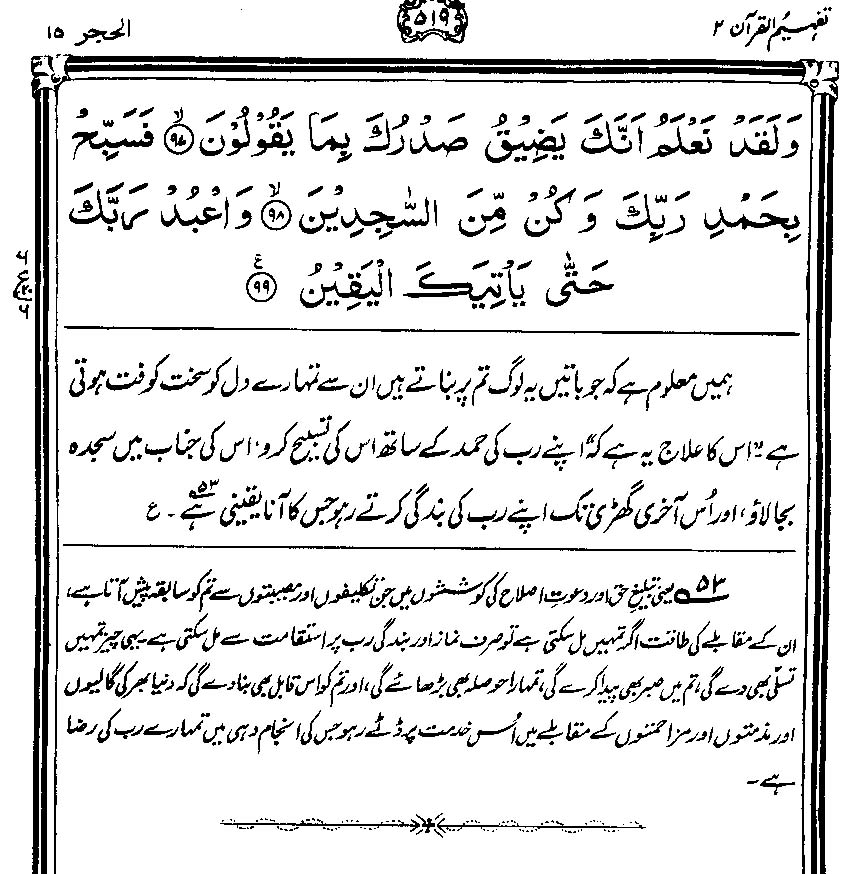 تفہیم القرآن ۲
۵۱۹
الحجر ۱۵
وَلَقَدْ نَعْلَمُ اَنَّكَ يَضِيْقُ صَدْرُكَ بِمَا يَقُوْلُوْنَ ۙ﴿۹۷﴾ فَسَبِّحْ
بِحَمْدِ رَبِّكَ وَكُنْ مِّنَ السّٰجِدِيْنَ ۙ﴿۹۸﴾ وَاعْبُدْ رَبَّكَ
حَتّٰى يَاْتِيَكَ الْيَقِيْنُ ﴿۹۹﴾ ع
ہمیں معلوم ہے کہ جو باتیں یہ لوگ تم پر بناتے ہیں ان سے تمہارے دل کو سخت کوفت ہوتی
ہے۔ اس کا علاج یہ ہے کہ اپنے رب کی حمد کے ساتھ اس کی تسبیح کرو، اس کی جناب میں سجدہ
بجا لاؤ، اور اُس آخری گھڑی تک اپنے رب کی بندگی کرتے رہو جس کا آنا یقینی ہے۵۳۔ ع
۵۳ یعنی تبلیغِ حق اور دعوتِ اصلاح کی کوششوں میں جن تکلیفوں اور مصیبتوں سے تم کو سابقہ پیش آتا ہے،
ان کے مقابلے کی طاقت اگر تمہیں مل سکتی ہے تو صرف نماز اور بندگی رب پر استقامت سے مل سکتی ہے۔ یہی چیز تمہیں
تسلّی بھی دے گی، تم میں صبر بھی پیدا کرے گی، تمہارا حوصلہ بھی بڑھائے گی، اور تم کو اس قابل بھی بنا دے گی کہ دنیا بھر کی گالیوں
اور مذمتوں اور مزاحمتوں کے مقابلے میں اُس خدمت پر ڈٹے رہو جس کی انجام دہی میں تمہارے رب کی رضا
ہے۔